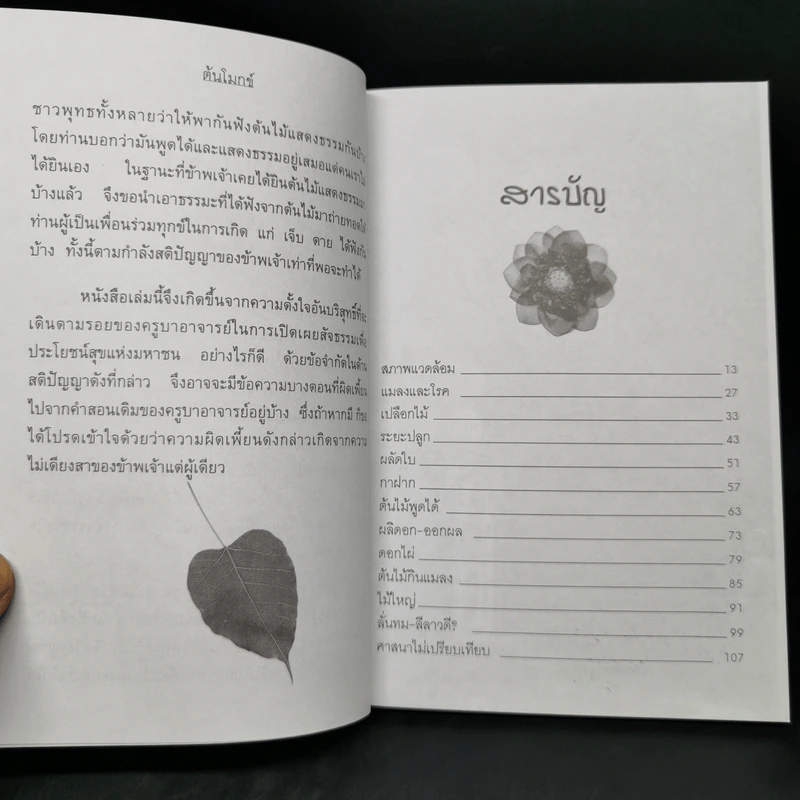 ต้นโมกข์
ชาวพุทธทั้งหลายว่าให้พากันฟังต้นไม้แสดงธรรมกันบ้าง
โดยท่านบอกว่ามันพูดได้และแสดงธรรมอยู่เสมอแต่คนเรา
ได้ยินเอง ในฐานะที่ข้าพเจ้าเคยได้ยินต้นไม้แสดงธรรม
บ้างแล้ว จึงขอนำเอาธรรมะที่ได้ฟังจากต้นไม้มาถ่ายทอด
ท่านผู้เป็นเพื่อนร่วมทุกข์ในการเกิด แก่ เจ็บ ตาย ได้ฟังกัน
บ้าง ทั้งนี้ตามกำลังสติปัญญาของข้าพเจ้าเท่าที่พอจะทำได้
หนังสือเล่มนี้จึงเกิดขึ้นจากความตั้งใจอันบริสุทธิ์ที่จะ
เดินตามรอยของครูบาอาจารย์ในการเปิดเผยสัจธรรมเพื่อ
ประโยชน์สุขแห่งมหาชน อย่างไรก็ดี ด้วยข้อจำกัดในด้าน
สติปัญญาดังที่กล่าว จึงอาจจะมีข้อความบางตอนที่ผิดเพี้ยน
ไปจากคำสอนเดิมของครูบาอาจารย์อยู่บ้าง ซึ่งถ้าหากมี ก็ขอ
ได้โปรดเข้าใจด้วยว่าความผิดเพี้ยนดังกล่าวเกิดจากความ
ไม่เดียงสาของข้าพเจ้าแต่ผู้เดียว
สารบัญ
สภาพแวดล้อม 13
แมลงและโรค 27
เปลือกไม้ 33
ระยะปลูก 43
ผลัดใบ 51
กาฝาก 57
ต้นไม้พูดได้ 63
ผลิดอก-ออกผล 73
ดอกไผ่ 79
ต้นไม้กินแมลง 85
ไม้ใหญ่ 91
ลั่นทม-ลีลาวดี? 99
ศาสนาไม่เปรียบเทียบ 107